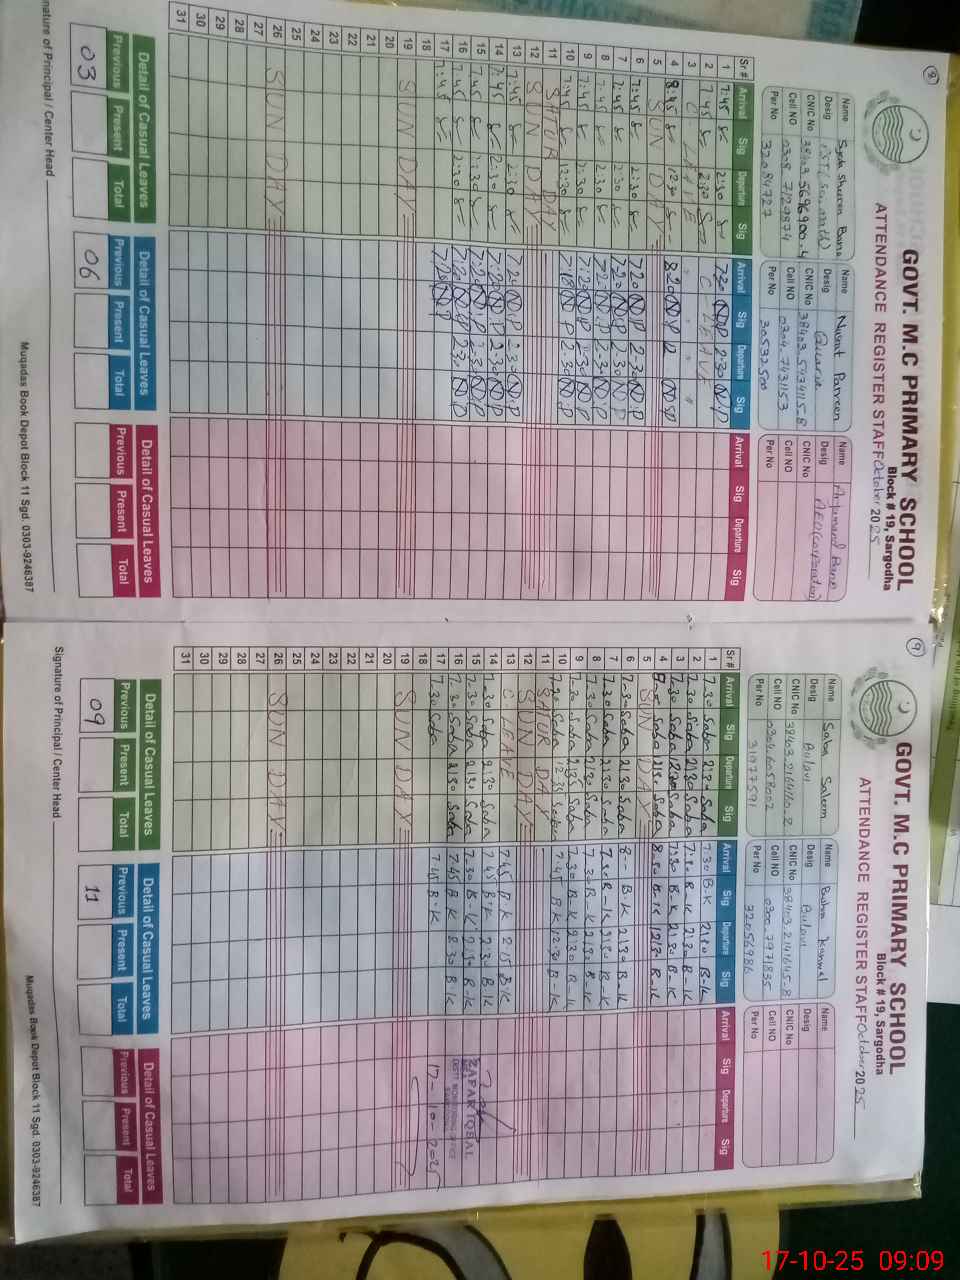 8
GOVT. M.C PRIMARY SCHOOL
Block # 19, Sargodha
ATTENDANCE REGISTER STAFF October 2025
Name
Desig
CNIC No
Cell NO 0308.7129874
Per No 32084727
Name Nusrat Parveen
Desig
CNIC No 38403.5434115-8
Cell NO 0304.7431153
Per No 30532500
Name Arjumand Bano
Desig AEO (Corporation)
CNIC No
Cell NO
Per No
Sr # Arrival Sig Departure Sig Arrival Sig Departure Sig Arrival Sig Departure Sig
1 7:45 2:30 7.20 N.P 2.30 N.P
2 7:45 2:30 C LEAVE
3 C LEAVE
4 8:45 12:30 N.P
5 SUN DAY
6 7:45 2:30 7.20 N.P 2.30 N.P
7 7:45 2:30 7.20 N.P 2.30 N.P
8 7:45 2:30 7.20 N.P 2.30 N.P
9 7:45 2:30 7.20 N.P 2.30 N.P
10 7:45 12:30 7.18 N.P 2.30 N.P
11 SATUR DAY
12 SUN DAY
13 7:45 2:30 7.20 N.P 2.30 N.P
14 7:45 2:30 7.20 N.P 2.30 N.P
15 7:45 2:30 7.20 N.P 2.30 N.P
16 7:45 2:30 7.20 N.P 2.30 N.P
17 7:45 7.20 N.P
18
19 SUN DAY
20
21
22
23
24
25
26 SUN DAY
27
28
29
30
31
Detail of Casual Leaves Detail of Casual Leaves Detail of Casual Leaves
Previous Present Total Previous Present Total Previous Present Total
03 06
nature of Principal / Center Head
Muqadas Book Depot Block 11 Sgd. 0303-9246387
9
GOVT. M.C PRIMARY SCHOOL
Block # 19, Sargodha
ATTENDANCE REGISTER STAFF October 2025
Name Saba Saleem
Desig
CNIC No
Cell NO 0304.6058002
Per No 31077591
Name Bushra Kanwal
Desig
CNIC No 38403.2141645-8
Cell NO 0300.7971835
Per No 32056986
Name
Desig
CNIC No
Cell NO
Per No
Sr # Arrival Sig Departure Sig Arrival Sig Departure Sig Arrival Sig Departure Sig
1 7-30 Saba 2:30 Saba 7.30 B.K 2:30 B-K
2 7-30 Saba 2:30 Saba B-K 2:30 B-K
3 7-30 Saba 2:30 Saba 7:30 B-K 2:30 B-K
4 Saba Saba B-K B-K
5 SUN DAY
6 7-30 Saba 2:30 Saba 8-- B-K 2:30 B-K
7 7-30 Saba 2:30 Saba B-K 2:30 B-K
8 7-30 Saba 2:30 Saba 7.30 B-K 2:30 B-K
9 7-30 Saba Saba 7-30 B-K 2:30 B-K
10 7-30 Saba 12:35 Saba 7.45 B-K 12:30 B-K
11 SATUR DAY
12 SUN DAY
13 C. LEAVE 7.45 B.K 2:15 B.K
14 7-30 Saba 2:30 Saba 7.45 B.K 2:30 B.K
15 7-30 Saba 2:30 Saba 7.30 B.K 2:30 B.K
16 7-30 Saba 2:30 Saba 7.45 B.K 2:30 B.K
17 7-30 Saba 7.45 B.K
18
19 SUN DAY
20
21
22
23
24
25
26 SUN DAY
27
28
29
30
31
ZAFAR IQBAL
17-10-2025
Detail of Casual Leaves Detail of Casual Leaves Detail of Casual Leaves
Previous Present Total Previous Present Total Previous Present Total
09 11
Signature of Principal / Center Head
Muqadas Book Depot Block 11 Sgd. 0303-9246387
17-10-25 09:09